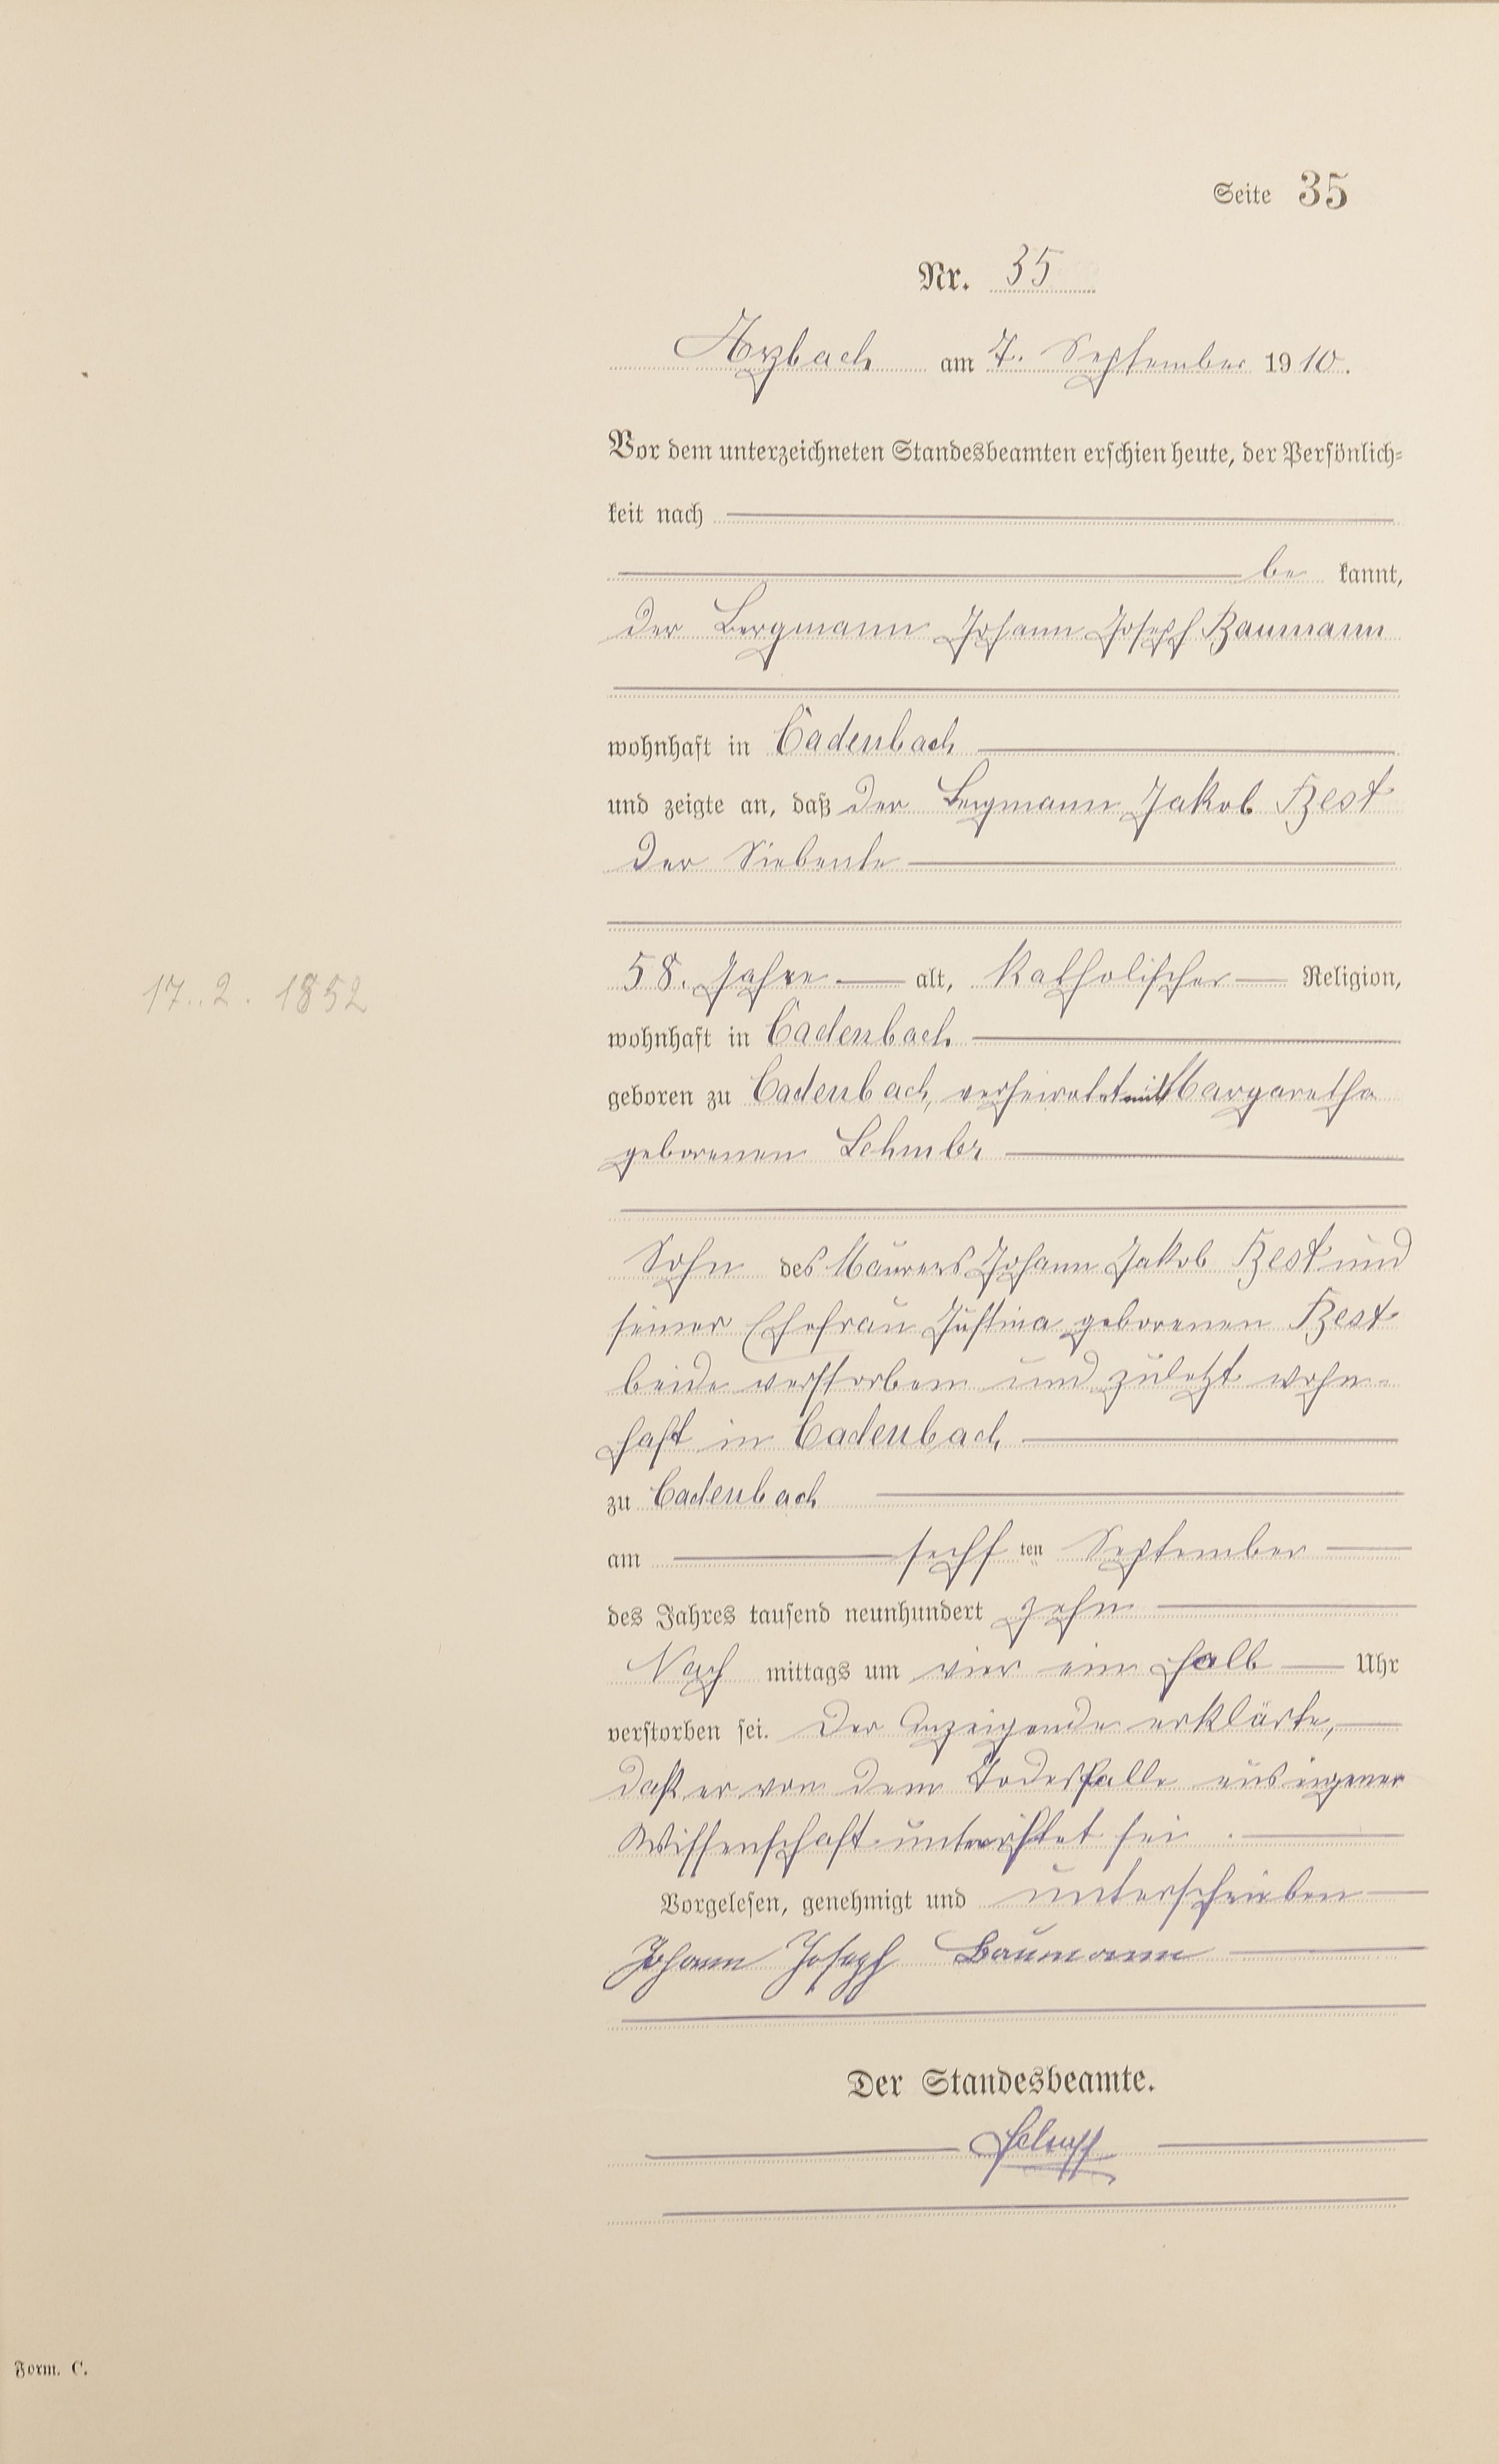 Seite 35
Nr. 35
Arzbach am 7. September 1910.
Vor dem unterzeichneten Standesbeamten erschien heute, der Persönlich-
keit nach
be kannt,
der Bergmann Johann Joseph Baumann
wohnhaft in Cadenbach
und zeigte an, daß der Bergmann Jakob Best
der Siebente
58. Jahre alt, katholischer Religion,
17. 2. 1852
wohnhaft in Cadenbach
geboren zu Cadenbach, verheiratet mit Margaretha
geborenen
Sohn des Maurers Johann Jakob Best und
seiner Ehefrau Justina geborenen Best
beide verstorben und zuletzt wohn-
haft in Cadenbach
zu Cadenbach
am sechsten September
des Jahres tausend neunhundert zehn
Nach mittags um vier ein halb Uhr
verstorben sei. Der Anzeigende erklärte,
daß er von dem Todesfalle aus eigener
Wissenschaft unterrichtet sei.
Vorgelesen, genehmigt und unterschrieben
Johann Joseph Baumann
Der Standesbeamte.
Form. C.